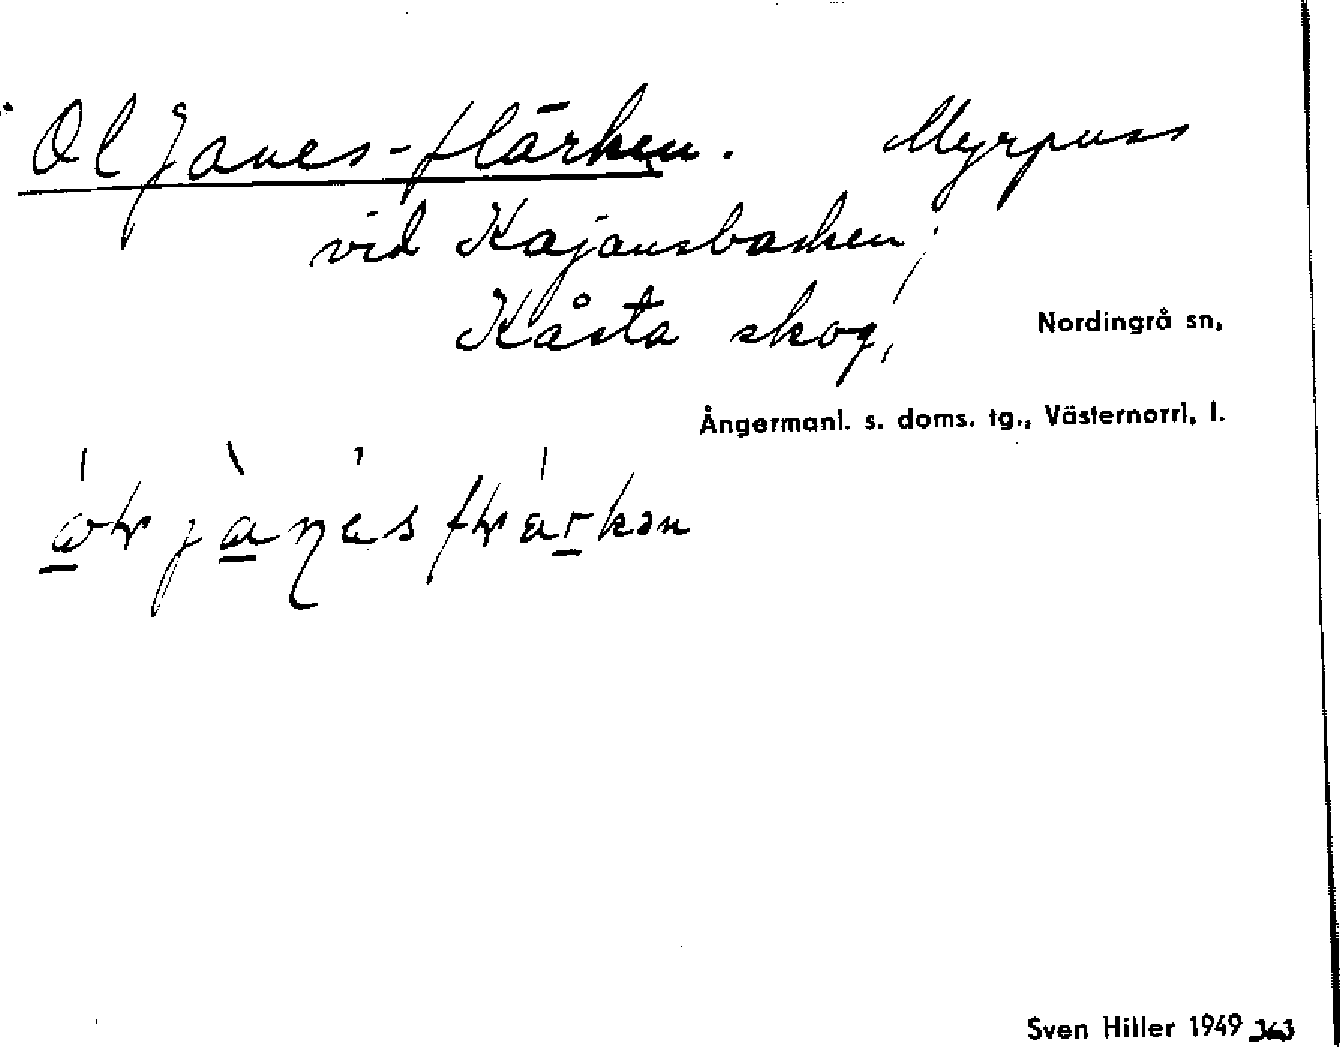 Ol Janes-flärken. Myrpuss
vid Kajansbacken,
Kåsta skog,
Nordingrå sn,
Ångermanl. s. doms. tg., Västernorrl. l.
Sven Hiller 1949 363